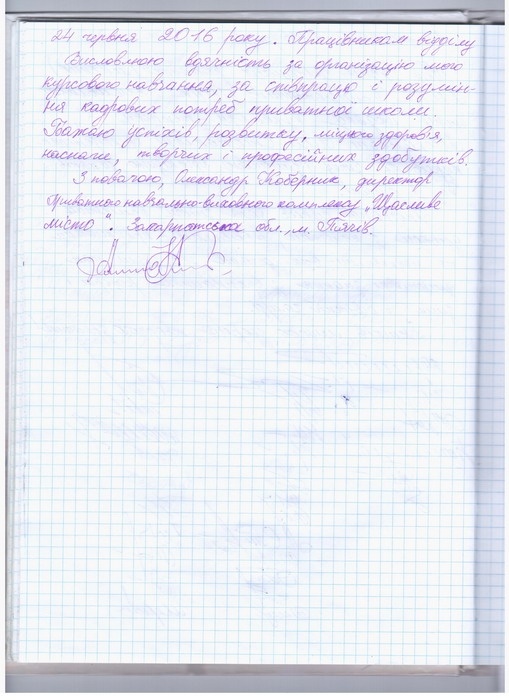 24 червня 2016 року. Працівникам відділу
Висловлюю вдячність за організацію мого
курсового навчання, за співпрацю і розумін-
ня кадрових потреб приватної школи.
Бажаю успіхів, розвитку, міцного здоров'я,
наснаги, творчих і професійних здобутків.
З повагою, Олександр Коберник, директор
Приватного навчально-виховного комплексу „Щасливе
місто". Закарпатська обл., м. Тячів.